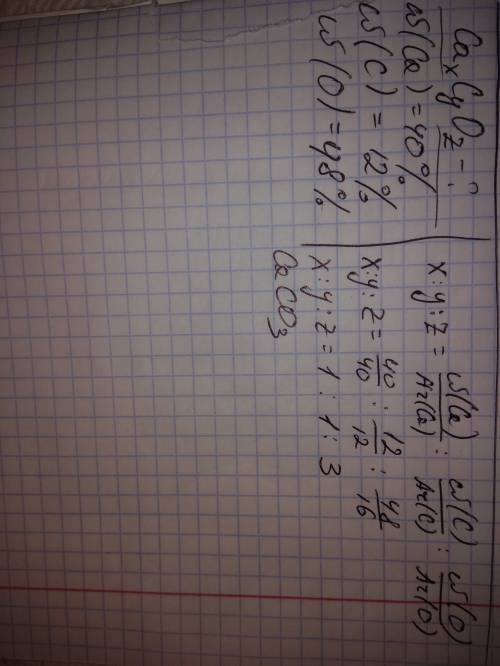 CaxCyOz - ?
ω(Ca) = 40%
ω(C) = 12%
ω(O) = 48%
x : y : z = ω(Ca)/Ar(Ca) : ω(C)/Ar(C) : ω(O)/Ar(O)
x : y : z = 40/40 : 12/12 : 48/16
x : y : z = 1 : 1 : 3
CaCO3